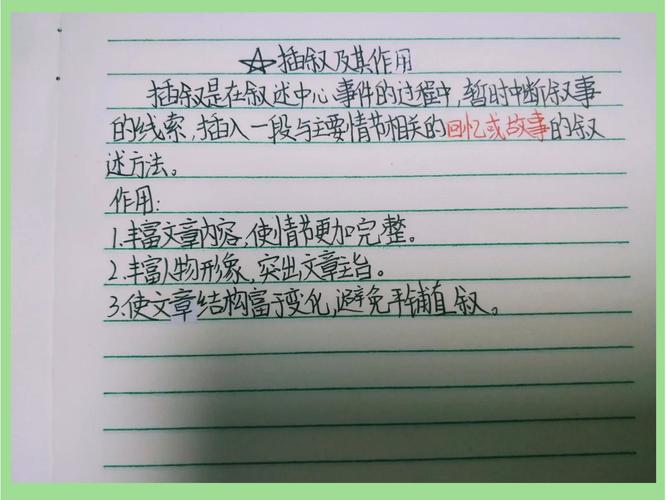 ☆插叙及其作用
插叙是在叙述中心事件的过程中,暂时中断叙事
的线索,插入一段与主要情节相关的回忆或故事的叙
述方法。
作用:
1.丰富文章内容,使情节更加完整。
2.丰富人物形象,突出文章主旨。
3.使文章结构富于变化,避免平铺直叙。